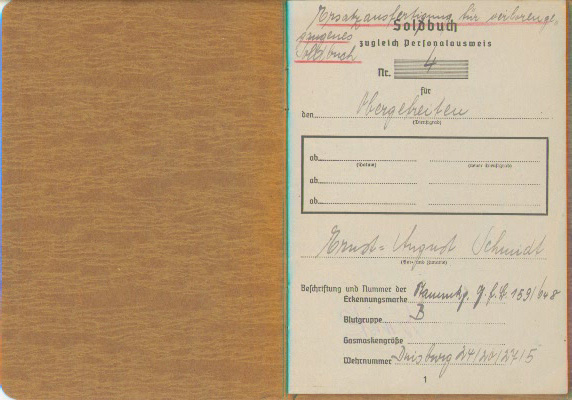 Ersatzausfertigung für verlorenge-
gangenes
Soldbuch
Soldbuch
zugleich Personalausweis
Nr. 4
für
den Obergefreiten
(Dienstgrad)
ab
(Datum) (neuer Dienstgrad)
ab
ab
Ernst-August Schmidt
(Vor- und Zuname)
Beschriftung und Nummer der
Erkennungsmarke Stammkp. 159/648
Blutgruppe B
Gasmaskengröße
Wehrnummer Duisburg 24/20/27/5
1